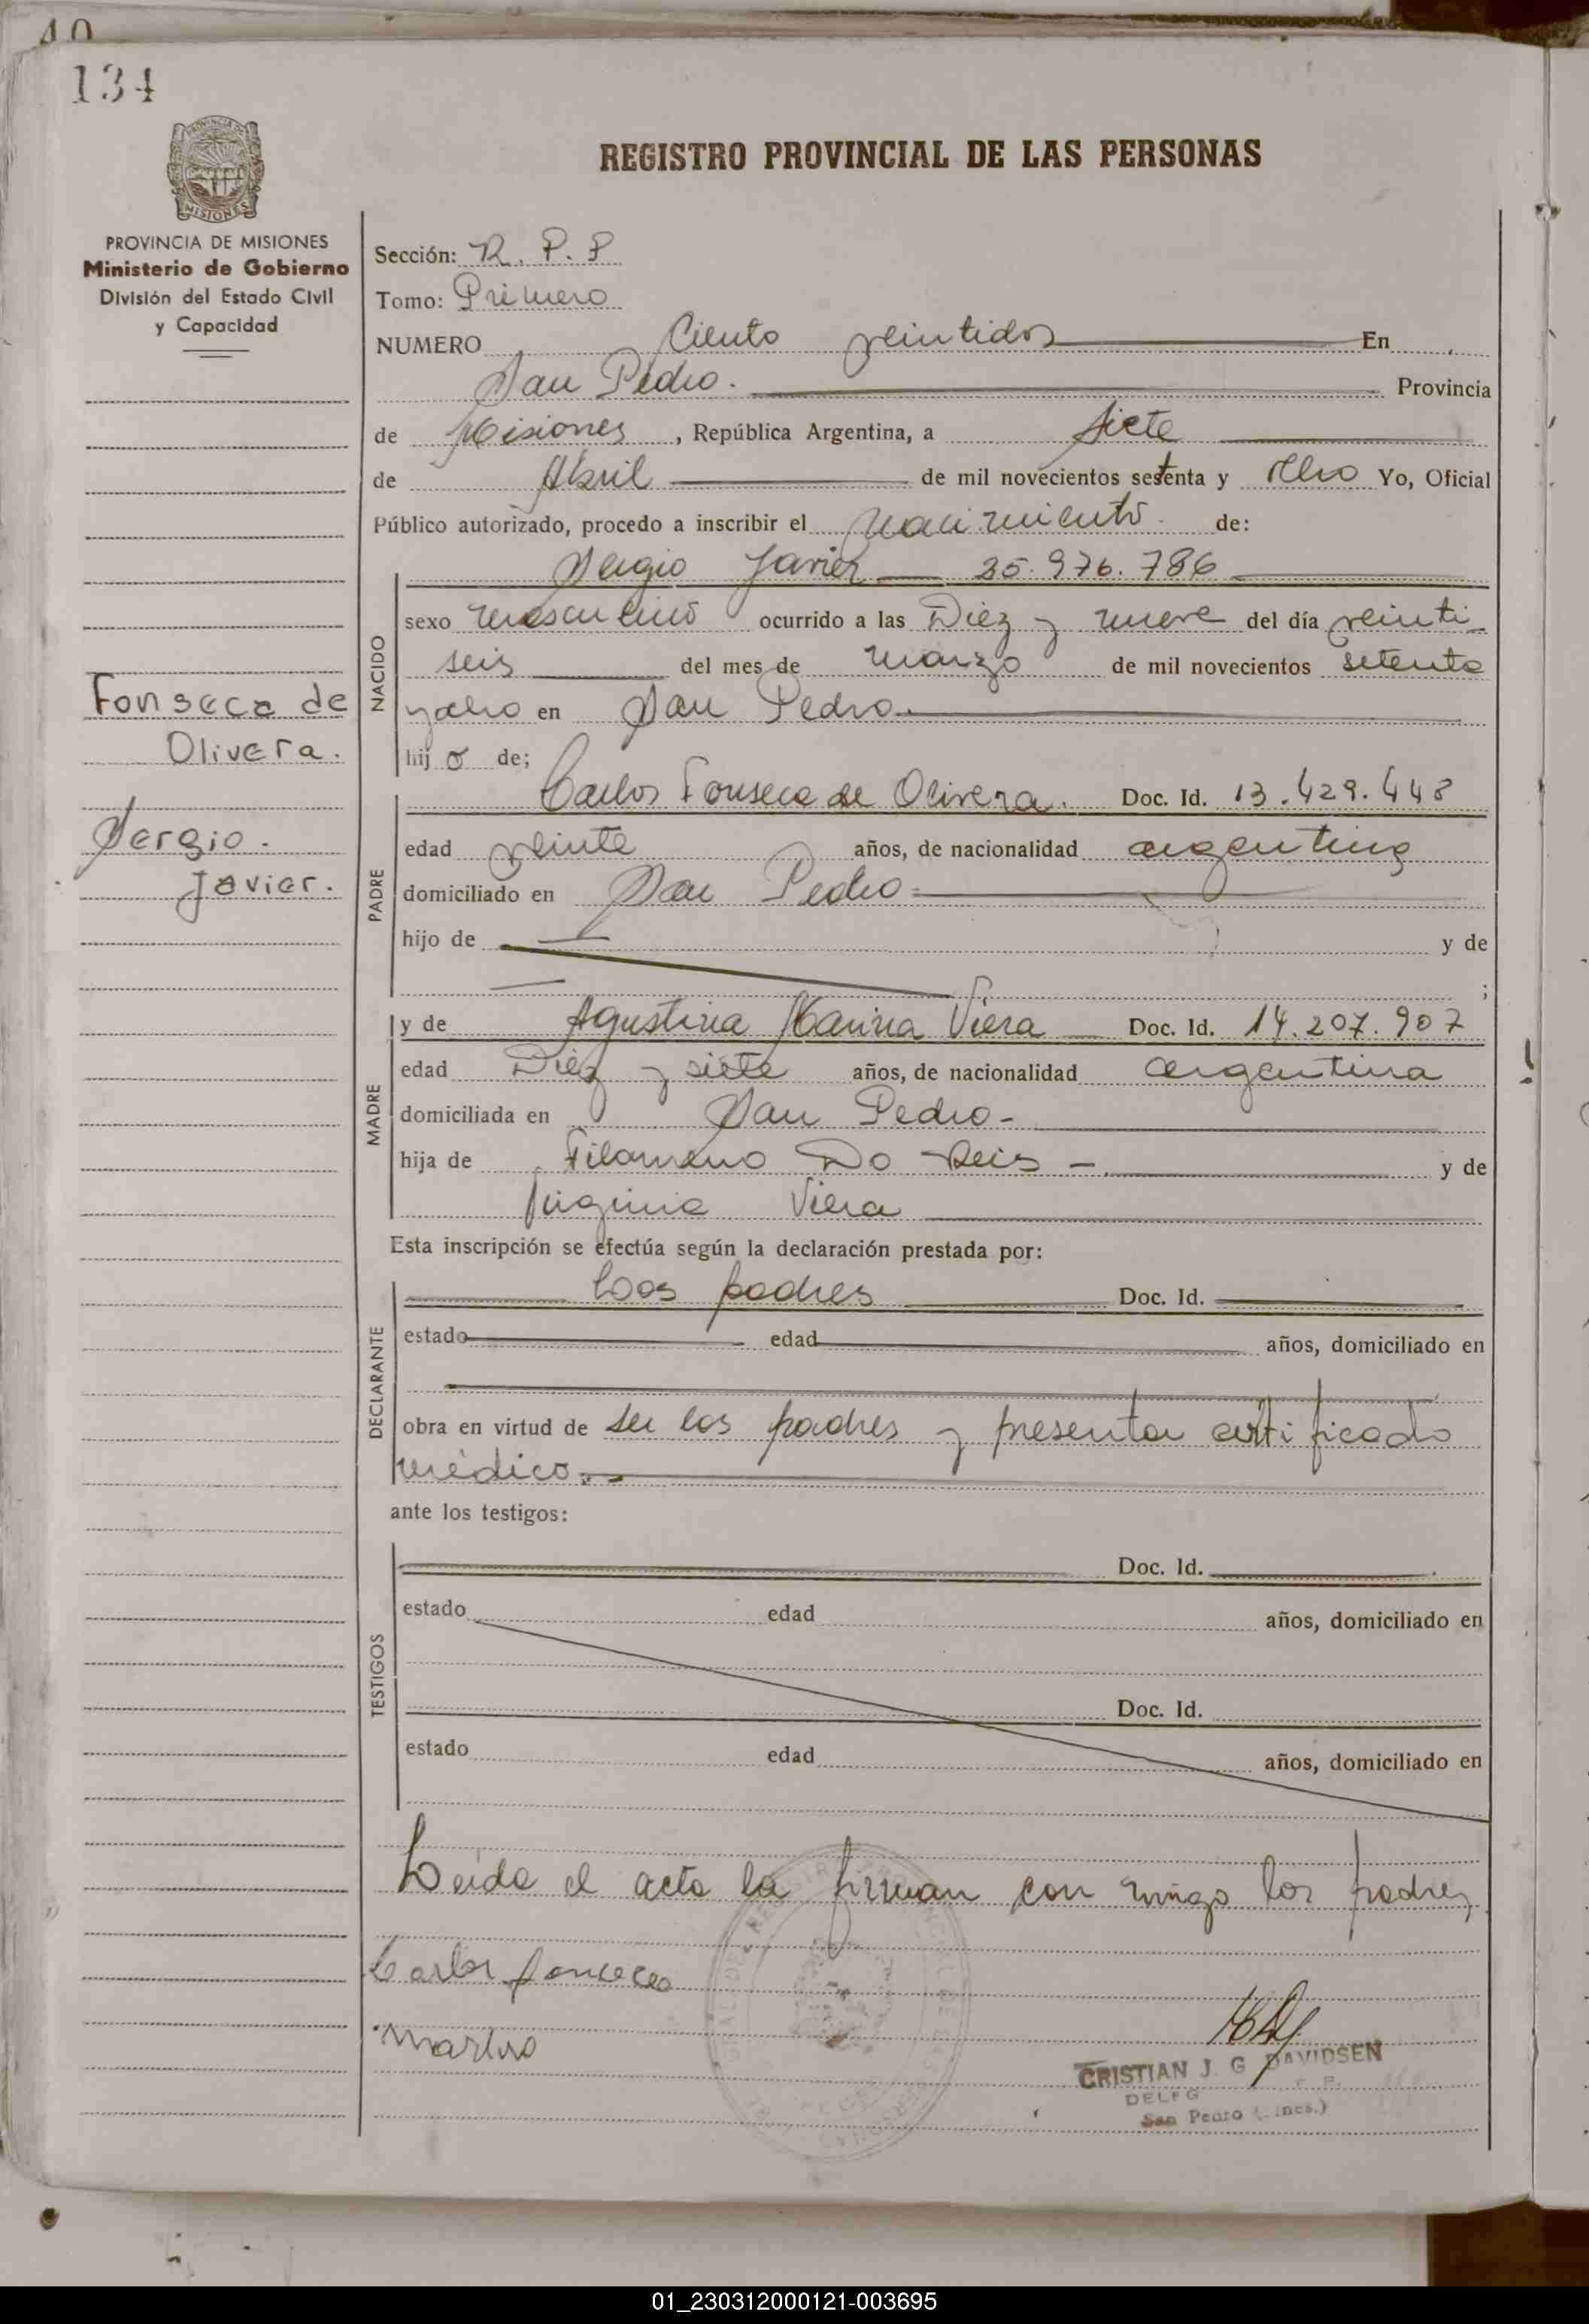 134
REGISTRO PROVINCIAL DE LAS PERSONAS
PROVINCIA DE MISIONES
Ministerio de Gobierno
División del Estado Civil
y Capacidad
Fonseca de
Olivera.
Sergio.
Javier.
Sección: R. P. P
Tomo: Primero
NUMERO Ciento veintidos En
San Pedro. Provincia
de Misiones, República Argentina, a Siete
de Abril de mil novecientos setenta y ocho Yo, Oficial
Público autorizado, procedo a inscribir el nacimiento de:
NACIDO
Sergio Javier 25.976.786
sexo masculino ocurrido a las Diez y nueve del día veinti
seis del mes de marzo de mil novecientos setenta
yocho en San Pedro.
hijo de;
PADRE
Carlos Fonseca de Olivera. Doc. Id. 13.429.448
edad veinte años, de nacionalidad argentina
domiciliado en San Pedro
hijo de y de
;
MADRE
y de Agustina Marina Viera Doc. Id. 14.207.907
edad Diez y siete años, de nacionalidad argentina
domiciliada en San Pedro-
hija de Filomeno Do Reis - y de
Virginia Viera
Esta inscripción se efectúa según la declaración prestada por:
DECLARANTE
Los padres Doc. Id.
estado edad años, domiciliado en
obra en virtud de ser los padres y presentar certificado
médico.-
ante los testigos:
TESTIGOS
Doc. Id.
estado edad años, domiciliado en
Doc. Id.
estado edad años, domiciliado en
Leida el acta la firman con migo los padres
Carlos fonceca
CRISTIAN J. G DAVIDSEN
San Pedro
01_230312000121-003695